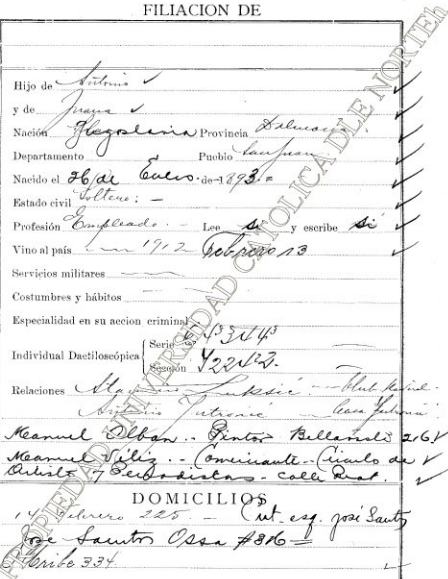 FILIACION DE
Hijo de Antonio
y de Juana
Nación Yugoslavia Provincia Dalmacia
Departamento Pueblo San Juan
Nacido el 26 de Enero de 1893
Estado civil Soltero: -
Profesión Empleado. - Lee si y escribe si
Vino al país 1912 Febrero 13
Servicios militares
Costumbres y hábitos
Especialidad en su accion criminal
Individual Dactiloscópica Serie 4343
Sección
Relaciones Luksić
Antonio Casa
Manuel Alban - Pintor 216
Manuel Véliz - Comerciante - Circulo de
Artistas y Periodistas - Calle Prat.
DOMICILIOS
14 Febrero 225 - esq. José Santos
José Santos Ossa #316
Uribe 334
PROPIEDAD UNIVERSIDAD CATOLICA DLE NORTE